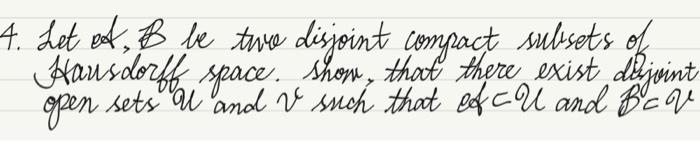 4. Let A, B be two disjoint compact subsets of
Hausdorff space. Show, that there exist disjoint
open sets U and V such that A ⊂ U and B ⊂ V